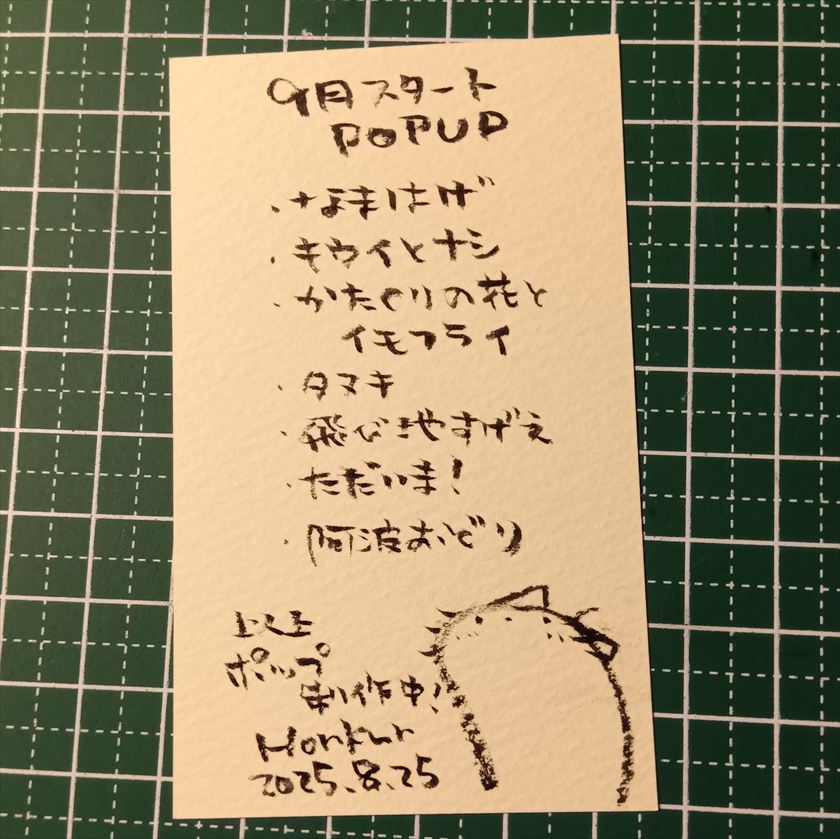 9月スタート
POPUP
・なまはげ
・キウイとナシ
・かたくりの花と
イモフライ
・タヌキ
・飛び地すげえ
・ただいま!
・阿波おどり
ポップ
制作中!
2025.8.25